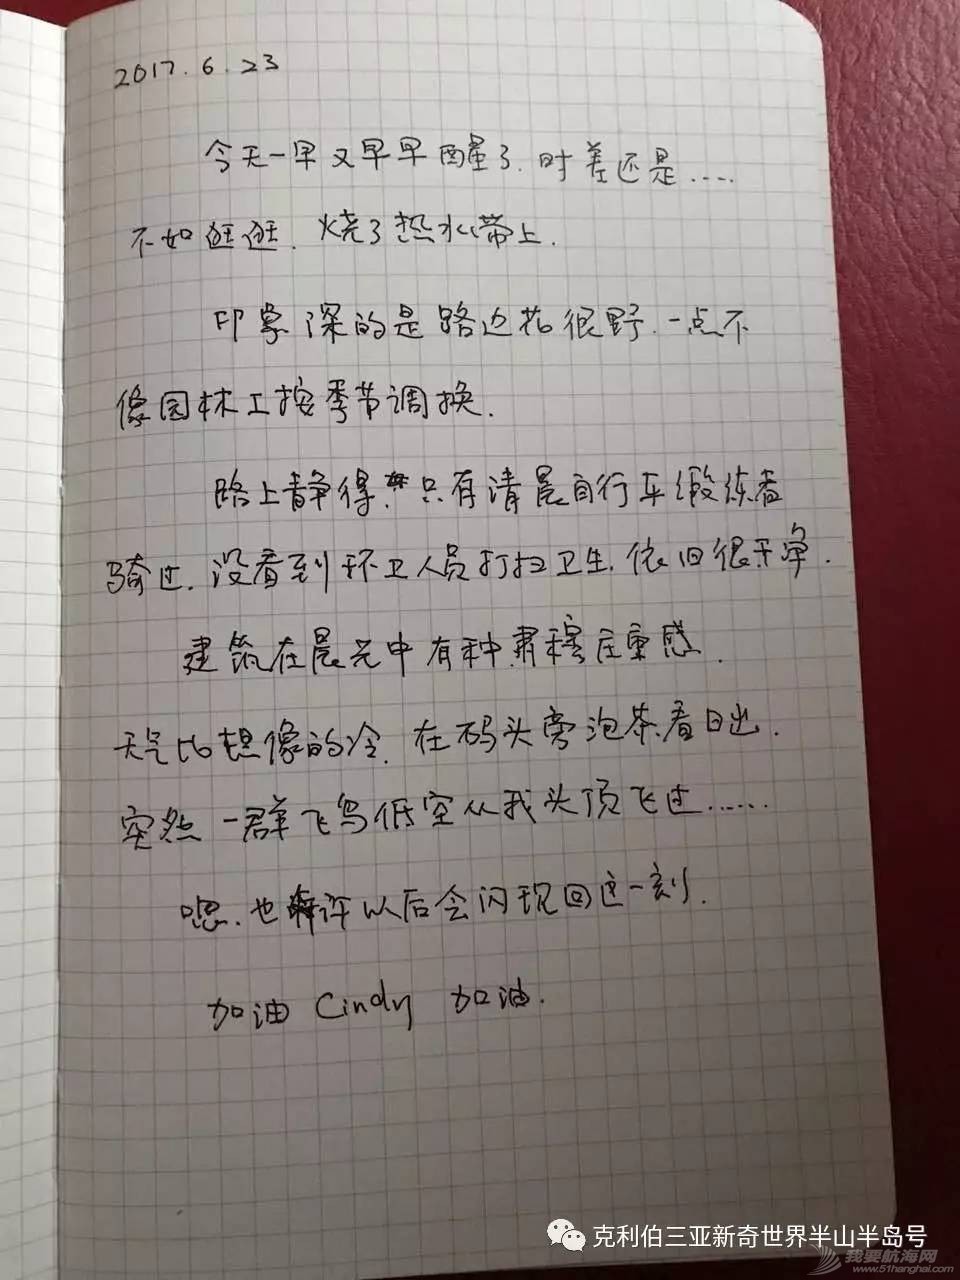 2017.6.23
今天一早又早早醒了.时差还是.....
不如逛逛.烧了热水带上.
印象深的是路边花很野.一点不
像园林工按季节调换.
路上静得.只有清晨自行车锻练者
骑过.没看到环卫人员打扫卫生.依旧很干净.
建筑在晨光中有种肃穆庄重感.
天气比想像的冷.在码头旁泡茶看日出.
突然一群飞鸟低空从我头顶飞过......
嗯.也许以后会闪现回这一刻.
加油 Cindy 加油.
克利伯三亚新奇世界半山半岛号
我要航海网
www.51hanghai.com